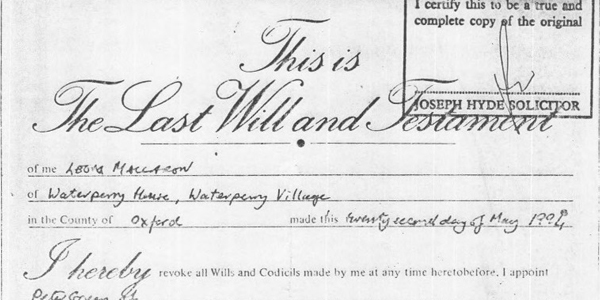 I certify this to be a true and
complete copy of the original
JOSEPH HYDE SOLICITOR
This is
The Last Will and Testament
of me Leona Maccaron
of Waterperry House, Waterperry Village
in the County of Oxford made this twenty second day of May 1994
I hereby revoke all Wills and Codicils made by me at any time heretobefore. I appoint
Peter Green